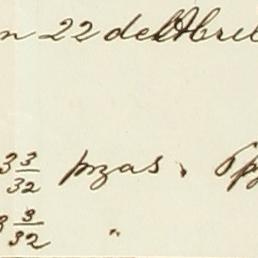 n 22 de Abril
3 3/32 pzas.
3 3/32 "